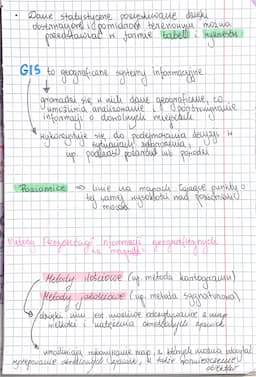 • Dane statystyczne pozyskiwane dzięki
obserwacjom i pomiarom terenowym można
przedstawiać w formie tabeli i wykresów
GIS to geograficzne systemy informacyjne
gromadzi się w nich dane geograficzne, co
umożliwia analizowanie i
informacji o dowolnych miejscach
wykorzystuje się do podejmowania decyzji w
sytuacjach zagrożenia,
np. podczas pożarów lub powodzi
Poziomice ⇒ linie na mapach łączące punkty o
tej samej wysokości nad poziomem
morza
Metody Prezentacji informacji geograficznych
na mapach
Metody ilościowe (np. metoda kartogramu)
Metody jakościowe (np. metoda sygnaturowa)
dzięki nim jest możliwe odczytywanie z map
wielkości i natężenia określonych zjawisk
umożliwiają rysowanie map, z których można odczytać
występowanie określonych zjawisk, a także rozmieszczenie
obiektów